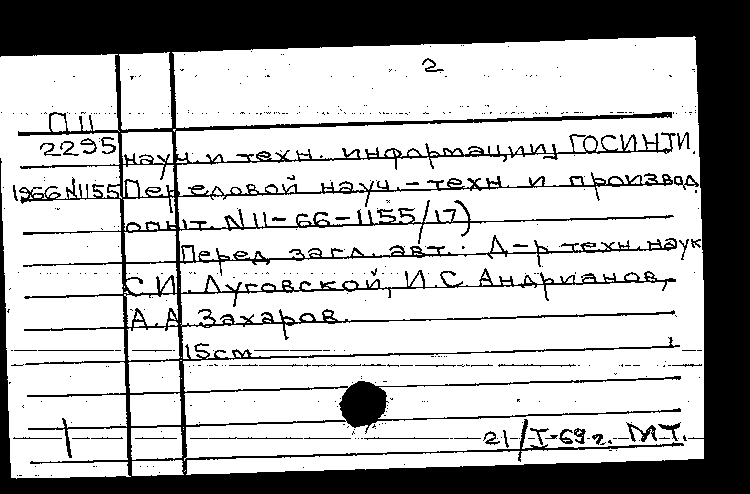 2
П 11
2295 науч. и техн. информации, ГОСИНТИ.
1966 N1155 Передовой науч.-техн. и производ
опыт. N 11-66-1155/17)
Перед загл. авт.: Д-р техн. наук
С.И. Луговской, И.С. Андрианов,
А.А. Захаров.
15см
21/I-69 г. М.Т.